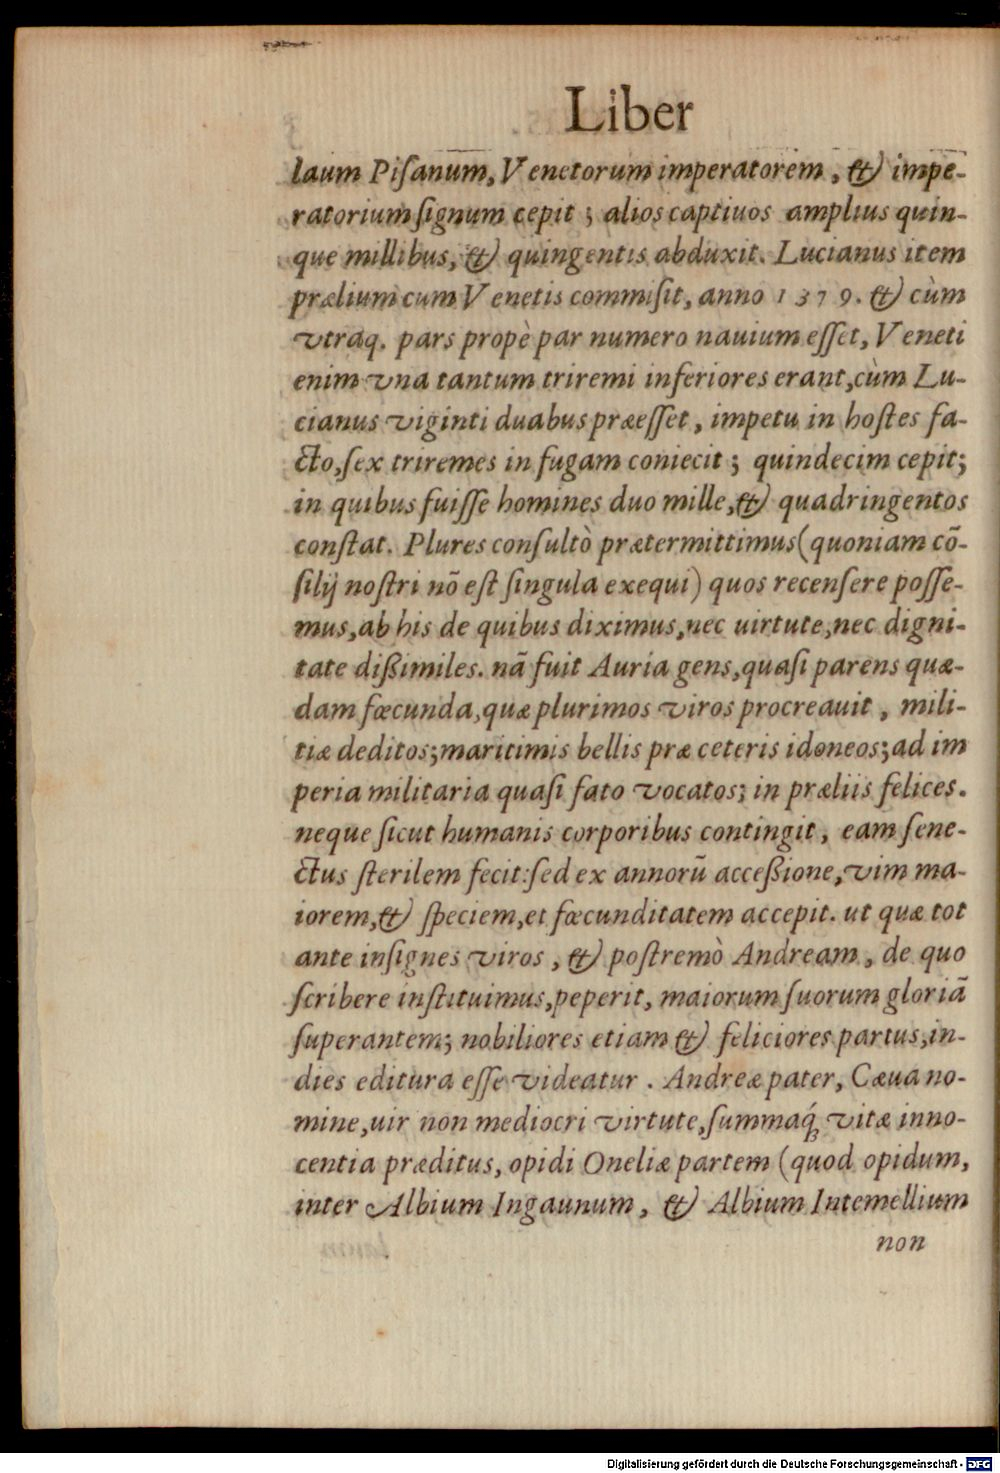 Liber
laum Piſanum, Venetorum imperatorem, & impe-
ratorium ſignum cepit; alios captiuos amplius quin-
que millibus, & quingentis abduxit. Lucianus item
prælium cum Venetis commiſit, anno 1379. & cùm
vtraq. pars propè par numero nauium eſſet, Veneti
enim vna tantum triremi inferiores erant, cùm Lu-
cianus viginti duabus præeſſet, impetu in hoſtes fa-
cto, ſex triremes in fugam coniecit; quindecim cepit;
in quibus fuiſſe homines duo mille, & quadringentos
conſtat. Plures conſultò prætermittimus (quoniam cõ-
ſilij noſtri nõ eſt ſingula exequi) quos recenſere poſſe-
mus, ab his de quibus diximus, nec uirtute, nec digni-
tate dißimiles. nã fuit Auria gens, quaſi parens quæ-
dam fœcunda, quæ plurimos viros procreauit, mili-
tiæ deditos; maritimis bellis præ ceteris idoneos; ad im
peria militaria quaſi fato vocatos; in præliis felices.
neque ſicut humanis corporibus contingit, eam ſene-
ctus ſterilem fecit: ſed ex annorũ acceßione, vim ma-
iorem, & ſpeciem, et fœcunditatem accepit. ut quæ tot
ante inſignes viros, & poſtremò Andream, de quo
ſcribere inſtituimus, peperit, maiorum ſuorum gloriã
ſuperantem; nobiliores etiam & feliciores partus, in-
dies editura eſſe videatur. Andreæ pater, Cæua no-
mine, uir non mediocri virtute, ſummaq́; vitæ inno-
centia præditus, opidi Oneliæ partem (quod opidum,
inter Albium Ingaunum, & Albium Intemellium
non
Digitalisierung gefördert durch die Deutsche Forschungsgemeinschaft - DFG